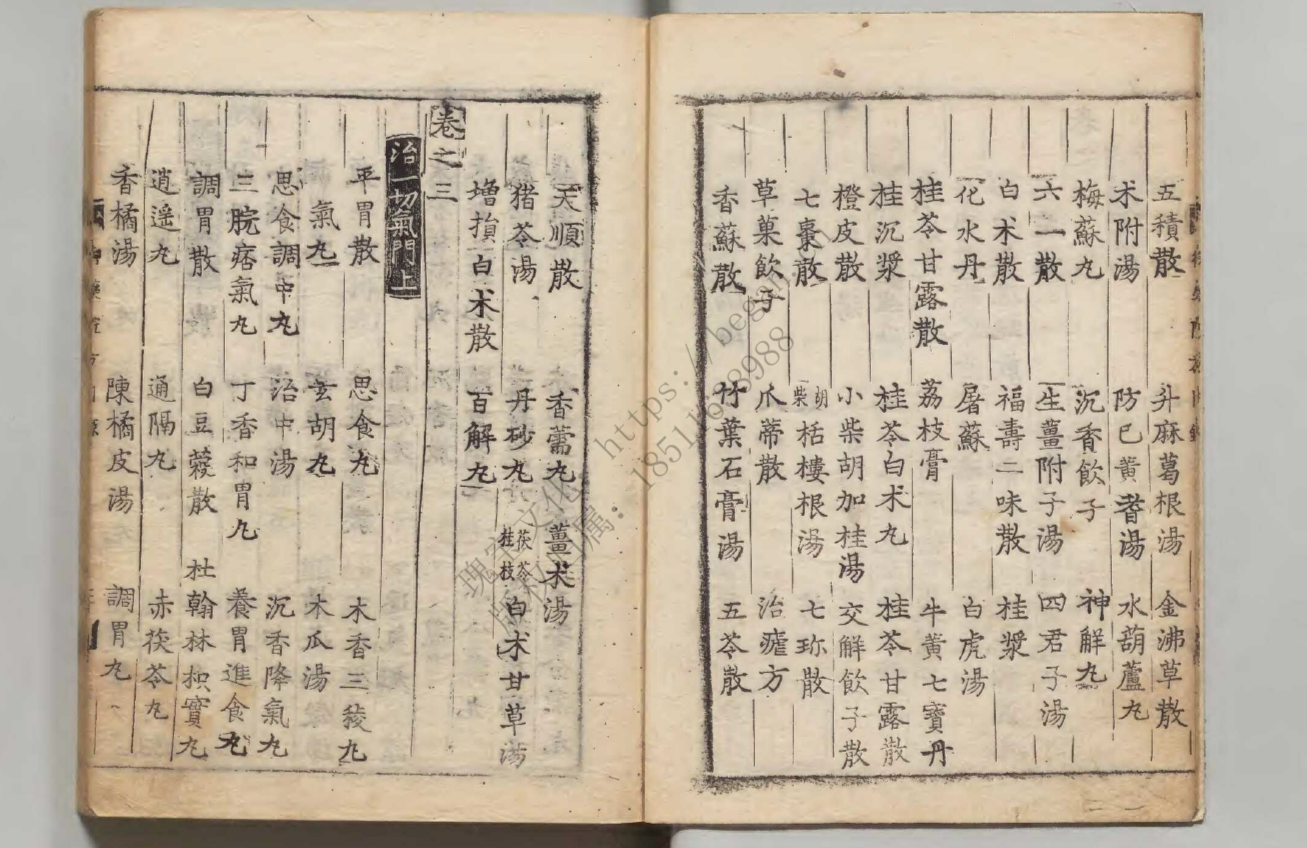 五積散　升麻葛根湯　金沸草散
术附湯　防已黄耆湯　水葫蘆丸
梅蘇丸　沉香飲子　神解丸
六一散　生薑附子湯　四君子湯
白术散　福壽二味散　桂漿
化水丹　屠蘇　白虎湯
桂苓甘露散　荔枝膏　牛黄七寳丹
桂沉漿　桂苓白术丸　桂苓甘露散
橙皮散　小柴胡加桂湯　交解飲子散
七棗散　胡柴栝樓根湯　七珎散
草菓飲子　爪蔕散　治瘧方
香蘇散　竹葉石膏湯　五苓散
天順散　香薷丸　薑术湯
猪苓湯　丹砂丸　茯苓桂枝白术甘草湯
增損白术散　百解丸
卷之三
治一切氣門上
平胃散　思食丸　木香三稜丸
氣丸　玄胡丸　木瓜湯
思食調中丸　治中湯　沉香降氣丸
三脘痞氣丸　丁香和胃丸　養胃進食丸
調胃散　白豆蔲散　杜翰林枳實丸
逍遥丸　通隔丸　赤茯苓丸
香橘湯　陳橘皮湯　調胃丸
https://bega
185116 8988